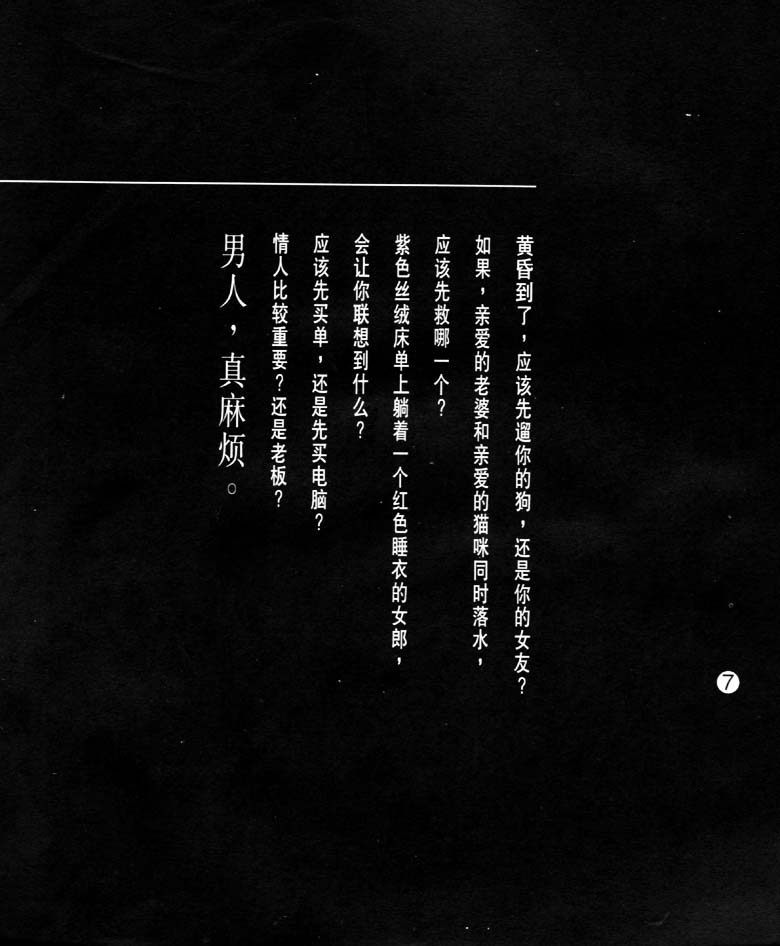 黄昏到了，应该先遛你的狗，还是你的女友？
如果，亲爱的老婆和亲爱的猫咪同时落水，
应该先救哪一个？
紫色丝绒床单上躺着一个红色睡衣的女郎，
会让你联想到什么？
应该先买单，还是先买电脑？
情人比较重要？还是老板？
男人，真麻烦。
7